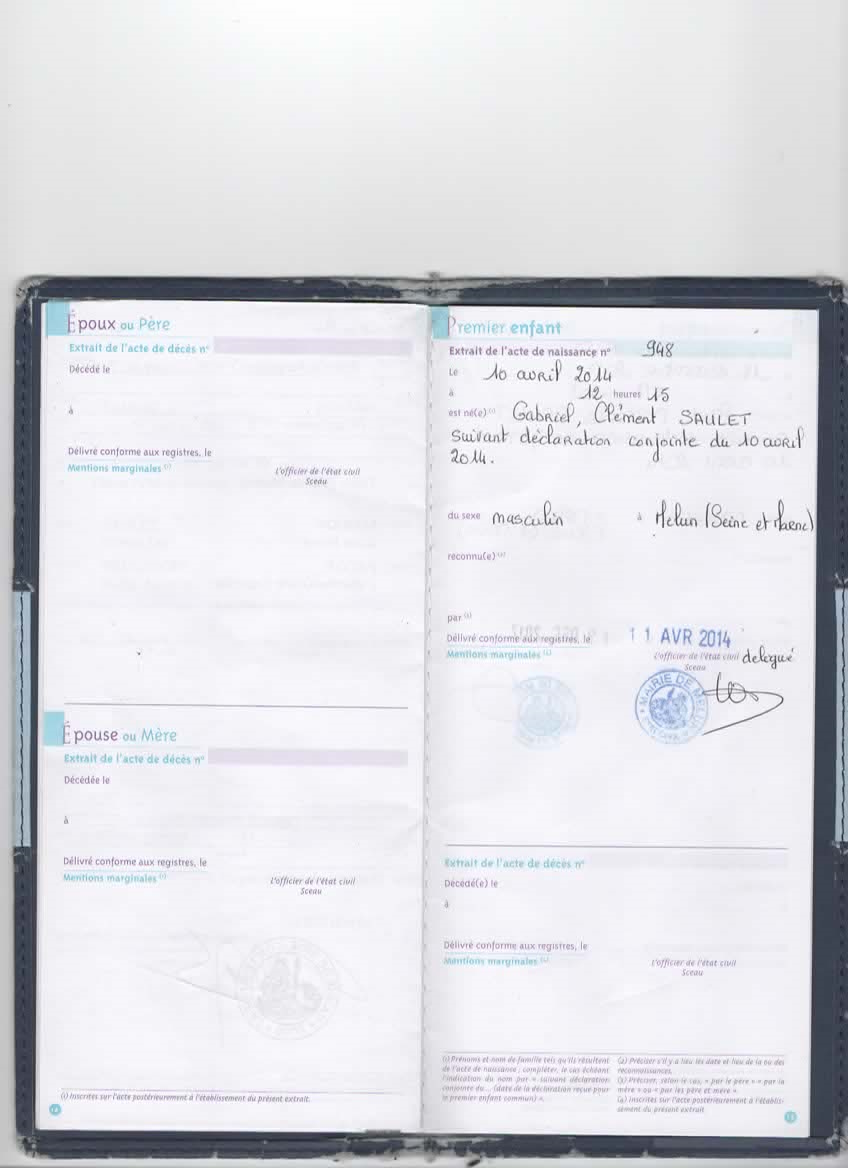 Époux ou Père
Extrait de l'acte de décès n°
Décédé le
à
Délivré conforme aux registres, le
Mentions marginales (1)
L'officier de l'état civil
Sceau
Épouse ou Mère
Extrait de l'acte de décès n°
Décédée le
à
Délivré conforme aux registres, le
Mentions marginales (1)
L'officier de l'état civil
Sceau
(1) Inscrites sur l'acte postérieurement à l'établissement du présent extrait.
Premier enfant
Extrait de l'acte de naissance n° 948
Le 10 avril 2014
à 12 heures 15
est né(e) (1) Gabriel, Clément SAULET
suivant déclaration conjointe du 10 avril
2014.
du sexe masculin à Melun (Seine et Marne)
reconnu(e) (2)
par (3)
Délivré conforme aux registres, le 11 AVR 2014
Mentions marginales (4)
L'officier de l'état civil delegué
Sceau
MAIRIE DE MELUN
Extrait de l'acte de décès n°
Décédé(e) le
à
Délivré conforme aux registres, le
Mentions marginales (4)
L'officier de l'état civil
Sceau
(1) Prénoms et nom de famille tels qu'ils résultent
de l'acte de naissance ; compléter, le cas échéant
l'indication du nom par « suivant déclaration
conjointe du... (date de la déclaration reçue pour
le premier enfant commun) ».
(2) Préciser s'il y a lieu les date et lieu de la ou des
reconnaissances.
(3) Préciser, selon le cas, « par le père » « par la
mère » ou « par les père et mère ».
(4) Inscrites sur l'acte postérieurement à l'établis-
sement du présent extrait